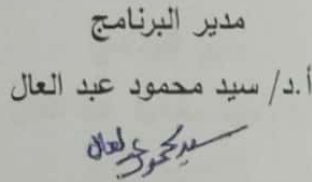 مدير البرنامج
أ.د/ سيد محمود عبد العال
سيد محمود عبد العال